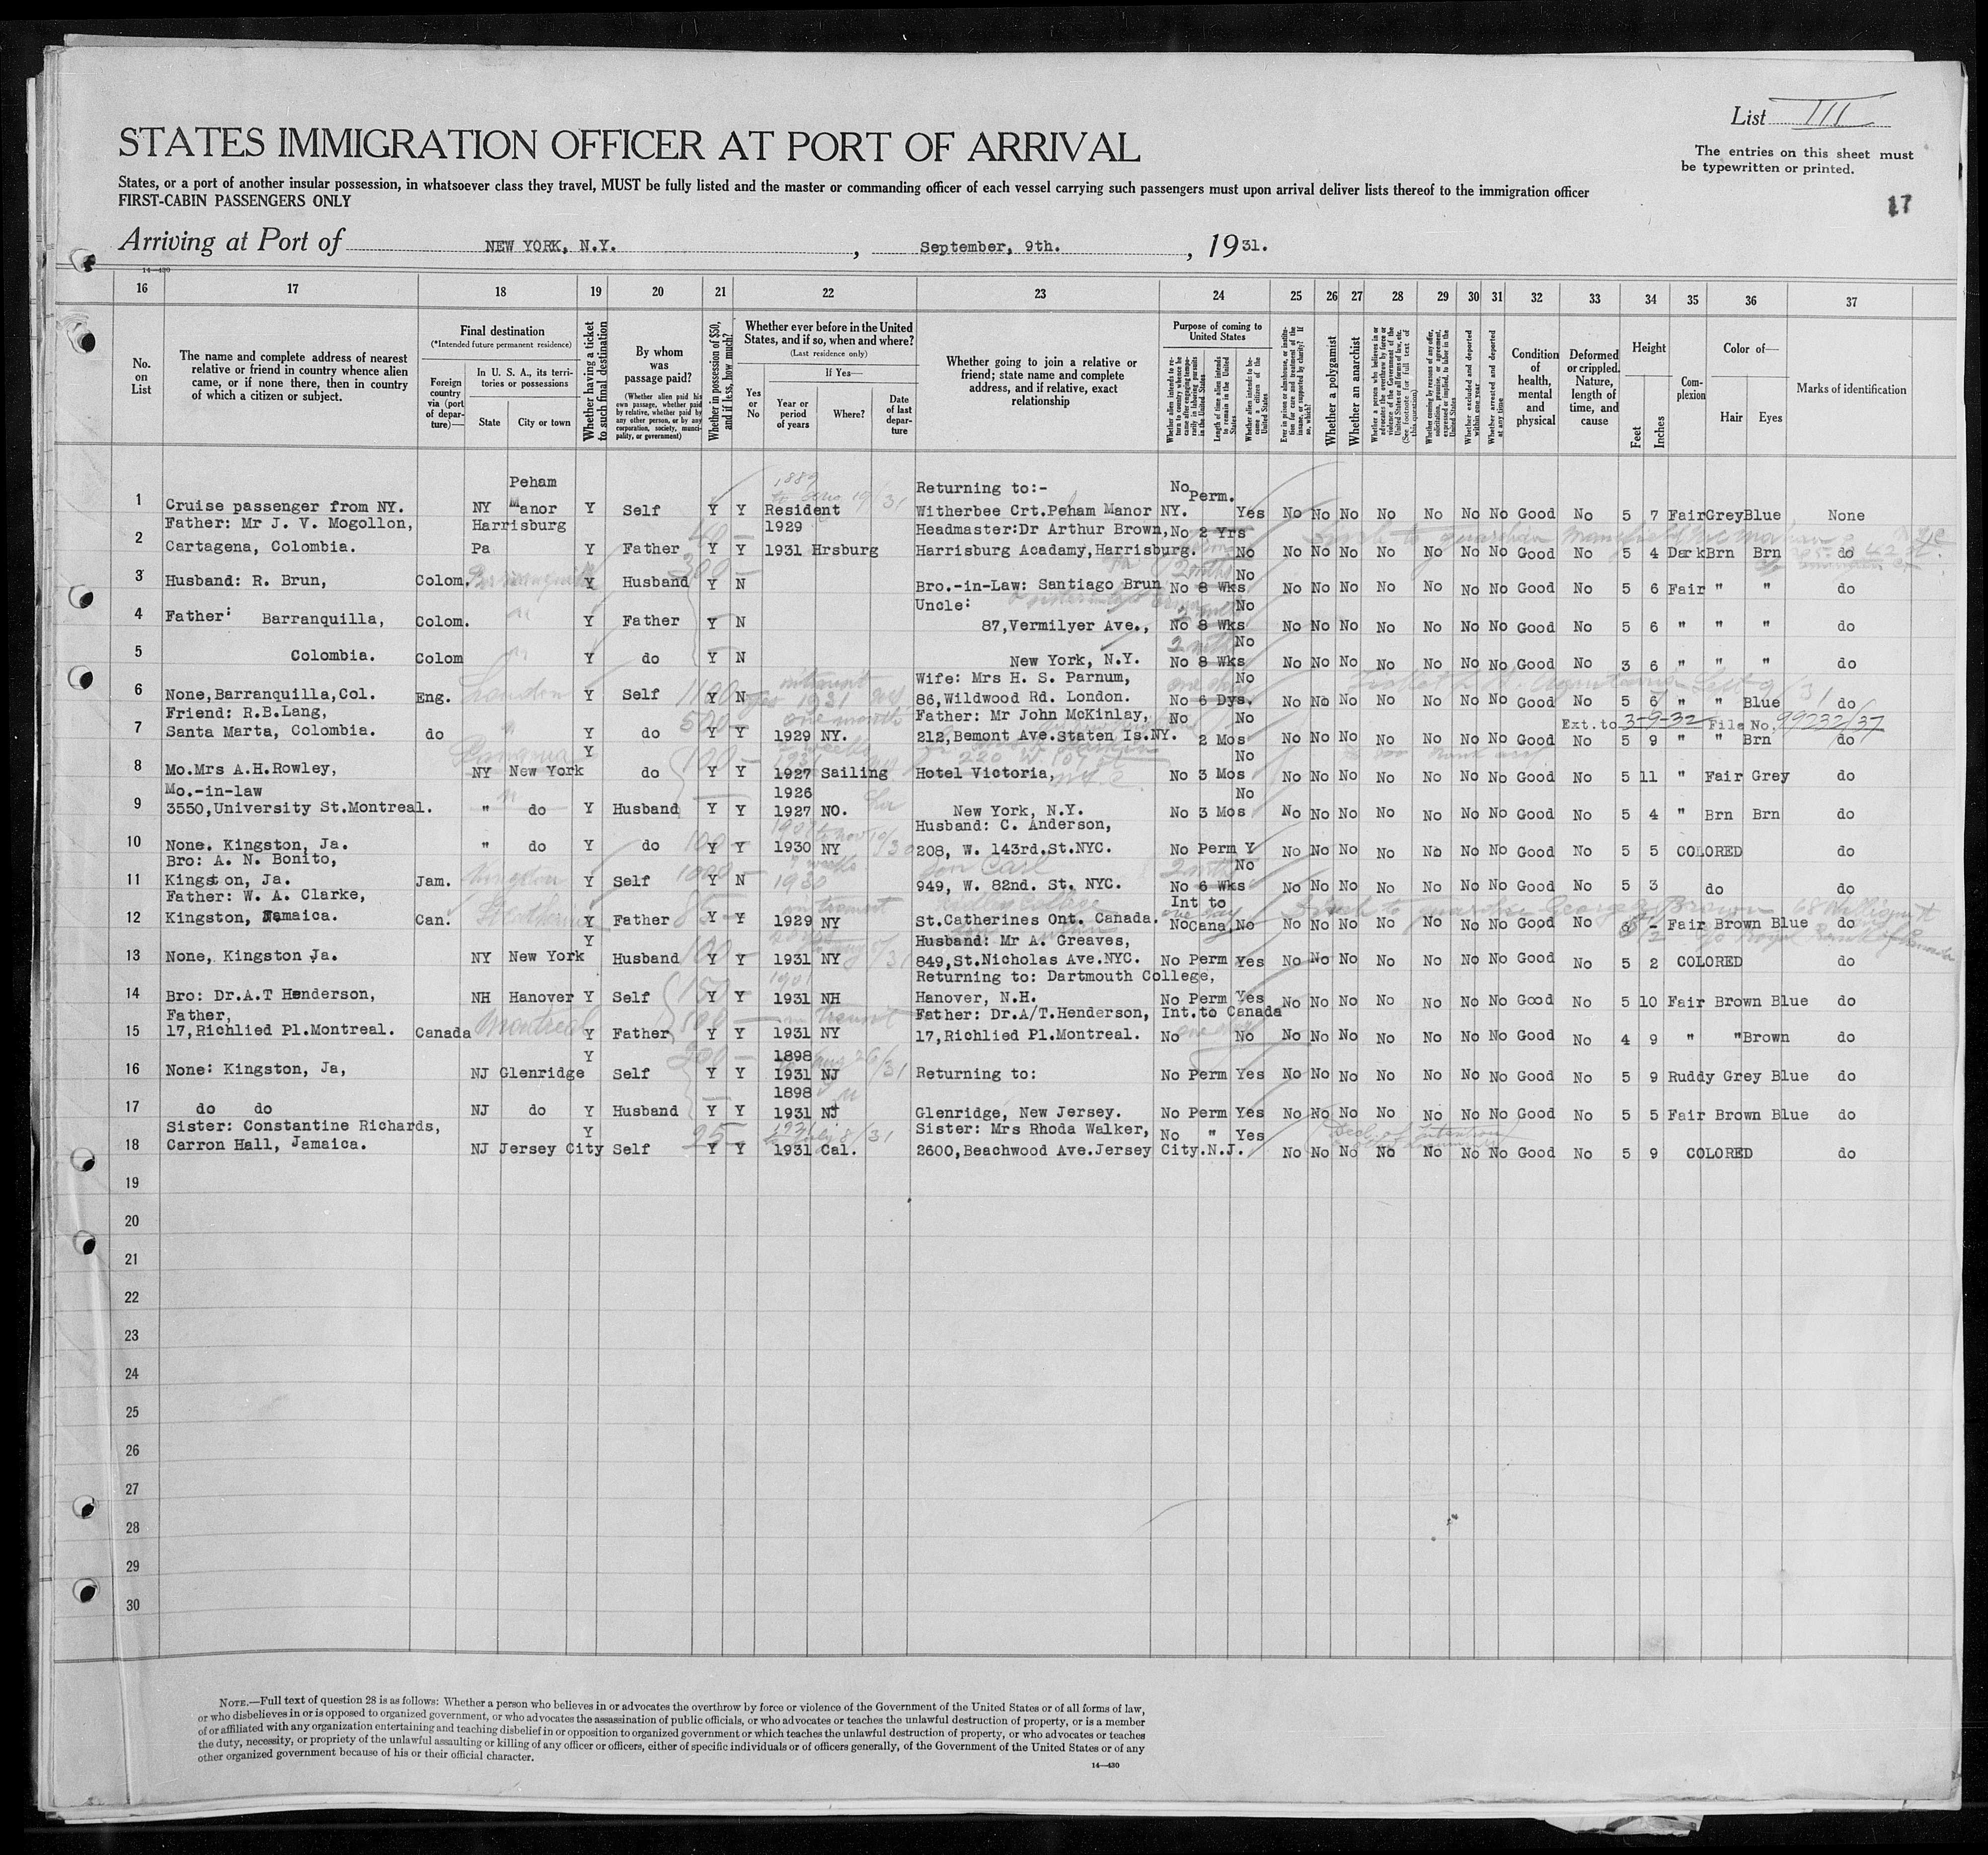 List III
STATES IMMIGRATION OFFICER AT PORT OF ARRIVAL
The entries on this sheet must
be typewritten or printed.
States, or a port of another insular possession, in whatsoever class they travel, MUST be fully listed and the master or commanding officer of each vessel carrying such passengers must upon arrival deliver lists thereof to the immigration officer
FIRST-CABIN PASSENGERS ONLY
17
Arriving at Port of NEW YORK, N.Y. , September, 9th. , 1931.
14—430
16 17 18 19 20 21 22 23 24 25 26 27 28 29 30 31 32 33 34 35 36 37
No. on List
The name and complete address of nearest relative or friend in country whence alien came, or if none there, then in country of which a citizen or subject.
Final destination
(*Intended future permanent residence)
Foreign country via (port of departure)—
In U. S. A., its territories or possessions
State City or town
Whether having a ticket to such final destination
By whom was passage paid?
(Whether alien paid his own passage, whether paid by relative, whether paid by any other person, or by any corporation, society, municipality, or government)
Whether in possession of $50, and if less, how much?
Whether ever before in the United States, and if so, when and where?
(Last residence only)
Yes or No
If Yes—
Year or period of years Where? Date of last departure
Whether going to join a relative or friend; state name and complete address, and if relative, exact relationship
Purpose of coming to United States
Whether alien intends to return to country whence he came after engaging temporarily in laboring pursuits in the United States
Length of time alien intends to remain in the United States
Whether alien intends to become a citizen of the United States
Ever in prison or almshouse, or institution for care and treatment of the insane, or supported by charity? If so, which?
Whether a polygamist
Whether an anarchist
Whether a person who believes in or advocates the overthrow by force or violence of the Government of the United States or all forms of law, etc. (See footnote for full text of this question)
Whether coming by reason of any offer, solicitation, promise, or agreement, expressed or implied, to labor in the United States
Whether excluded and deported within one year
Whether arrested and deported at any time
Condition of health, mental and physical
Deformed or crippled. Nature, length of time, and cause
Height
Feet Inches
Complexion
Color of—
Hair Eyes
Marks of identification
Peham
1889
Returning to:-
1 Cruise passenger from NY. NY Manor Y Self Y Y Resident Witherbee Crt.Peham Manor NY. No Perm. Yes No No No No No No No Good No 5 7 Fair Grey Blue None
Father: Mr J. V. Mogollon, Harrisburg 1929 Headmaster:Dr Arthur Brown, No 2 Yrs
2 Cartagena, Colombia. Pa Y Father Y Y 1931 Hrsburg Harrisburg Acadamy,Harrisburg. No No No No No No No No Good No 5 4 Dark Brn Brn do
3 Husband: R. Brun, Colom. Y Husband 300 Y N Bro.-in-Law: Santiago Brun No 8 Wks No No No No No No No No Good No 5 6 Fair " " do
Uncle:
4 Father: Barranquilla, Colom. " Y Father Y N 87,Vermilyer Ave., No 8 Wks No No No No No No No No Good No 5 6 " " " do
5 Colombia. Colom " Y do Y N New York, N.Y. No 8 Wks No No No No No No No No Good No 3 6 " " " do
Wife: Mrs H. S. Parnum,
6 None,Barranquilla,Col. Eng. London Y Self 1100 Y N 1931 86,Wildwood Rd. London. No 6 Dys. No No No No No No No No Good No 5 6 " " Blue do
Friend: R.B.Lang, 500 one month Father: Mr John McKinlay, No No Ext.to 3-9-32 File No. 99232/37
7 Santa Marta, Colombia. do " Y do Y Y 1929 NY. 212,Bemont Ave.Staten Is.NY. 2 Mos No No No No No No No Good No 5 9 " " Brn do
Panama Y 1931
8 Mo.Mrs A.H.Rowley, NY New York do 100 Y Y 1927 Sailing Hotel Victoria, No 3 Mos No No No No No No No No Good No 5 11 " Fair Grey do
Mo.-in-law 1926
9 3550,University St.Montreal. " do Y Husband Y Y 1927 NO. New York, N.Y. No 3 Mos No No No No No No No No Good No 5 4 " Brn Brn do
Husband: C. Anderson,
10 None. Kingston, Ja. " do Y do 100 Y Y 1930 NY 208, W. 143rd.St.NYC. No Perm Y No No No No No No No Good No 5 5 COLORED do
Bro: A. N. Bonito, 1000 son Carl
11 Kingston, Ja. Jam. Kingston Y Self Y N 1930 949, W. 82nd. St. NYC. No 6 Wks No No No No No No No No Good No 5 3 do do
Father: W. A. Clarke, in transit Ridley College Int to
12 Kingston, Jamaica. Can. Y Father 85 Y Y 1929 NY St.Catherines Ont. Canada. No Cana No No No No No No No No Good No Fair Brown Blue do
Husband: Mr A. Greaves,
13 None, Kingston Ja. NY New York Y Husband 100 Y Y 1931 NY 849,St.Nicholas Ave.NYC. No Perm Yes No No No No No No No Good No 5 2 COLORED do
1901 Returning to: Dartmouth College,
14 Bro: Dr.A.T Henderson, NH Hanover Y Self 150 Y Y 1931 NH Hanover, N.H. No Perm Yes No No No No No No No Good No 5 10 Fair Brown Blue do
Father, in transit Father: Dr.A/T.Henderson, Int.to Canada
15 17,Richlied Pl.Montreal. Canada Montreal Y Father Y Y 1931 NY 17,Richlied Pl.Montreal. No one day No No No No No No No No Good No 4 9 " " Brown do
Y 200 1898
16 None: Kingston, Ja, NJ Glenridge Self Y Y 1931 NJ Returning to: No Perm Yes No No No No No No No Good No 5 9 Ruddy Grey Blue do
1898
17 do do NJ do Y Husband Y Y 1931 NJ Glenridge, New Jersey. No Perm Yes No No No No No No No Good No 5 5 Fair Brown Blue do
Sister: Constantine Richards, Y 25 Sister: Mrs Rhoda Walker, No " Yes
18 Carron Hall, Jamaica. NJ Jersey City Self Y Y 1931 Cal. 2600,Beachwood Ave.Jersey City.N.J. No No No No No No No Good No 5 9 COLORED do
19
20
21
22
23
24
25
26
27
28
29
30
NOTE.—Full text of question 28 is as follows: Whether a person who believes in or advocates the overthrow by force or violence of the Government of the United States or of all forms of law,
or who disbelieves in or is opposed to organized government, or who advocates the assassination of public officials, or who advocates or teaches the unlawful destruction of property, or is a member
of or affiliated with any organization entertaining and teaching disbelief in or opposition to organized government or which teaches the unlawful destruction of property, or who advocates or teaches
the duty, necessity, or propriety of the unlawful assaulting or killing of any officer or officers, either of specific individuals or of officers generally, of the Government of the United States or of any
other organized government because of his or their official character.
14—430